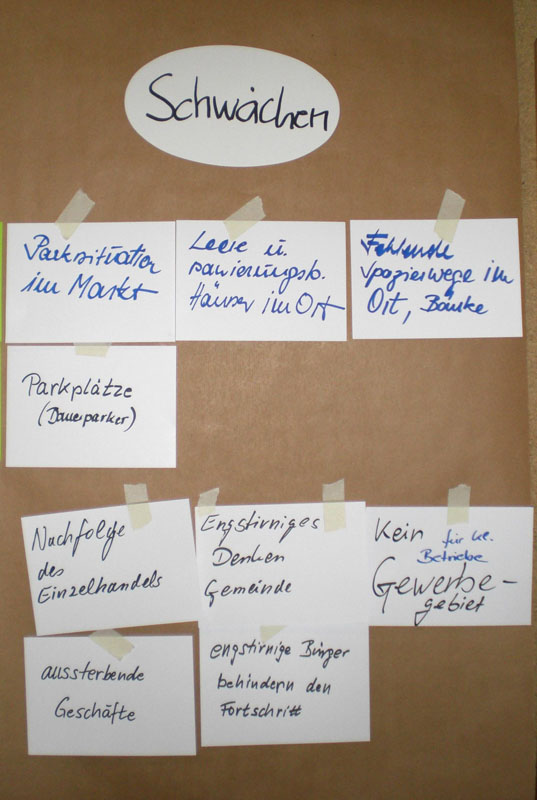 Schwächen
Parksituation
im Markt
Leere u.
sanierungsb.
Häuser im Ort
Fehlende
Spazierwege im
Ort, Bänke
Parkplätze
(Dauerparker)
Nachfolge
des
Einzelhandels
Engstirniges
Denken
Gemeinde
Kein für kl.
Betriebe
Gewerbe-
gebiet
aussterbende
Geschäfte
engstirnige Bürger
behindern den
Fortschritt